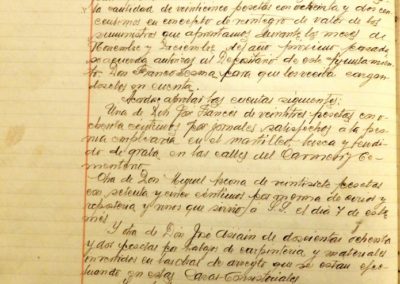 la cantidad de veinticinco pesetas con ochenta y dos
centimos en concepto de reintegro de valor de los
suministros que aprontamos durante los meses de
Noviembre y Diciembre del año proximo pasado,
se acuerda autorizar al Depositario de este Ayuntamien-
to Don Francisco para que los pueda cargar-
selos en cuenta.
Acordose aprobar las cuentas siguientes:
Una de Don José Frances de veintitres pesetas con
ochenta centimos por jornales satisfechos a la
empleada en el busca y
do de grata en las calles del Carmen y Ce-
menterio.
Otra de Don Miguel de veintisiete pesetas
con setenta y cinco centimos por de
reposteria y vinos que sirvió a S.S. el dia 7 de este
mes
Y otra de Don José Asiain de doscientas ochenta
y dos pesetas por trabajos de carpinteria y materiales
invertidos en las obras de arreglo que se estan efec-
tuando en estas Casas Consistoriales